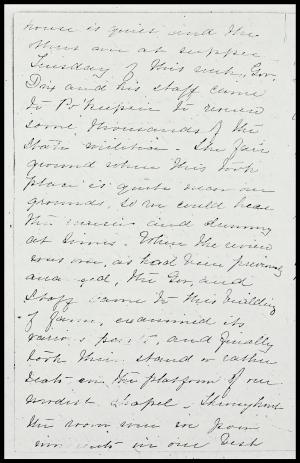 house is quiet and the
others are at supper.
Tuesday of this week, Gov.
Day and his staff came
to Po'keepsie to review
some thousands of the
State militia. The fair
ground where this took
place is quite near our
grounds, so we could hear
the music and drumming
at times. When the review
was over, as had been previously
arranged, the Gov. and
Staff came to this building
of yours, examined its
various parts, and finally
took their stand or rather
seats on the platform of our
modest chapel. Throughout
the room were in
in our best